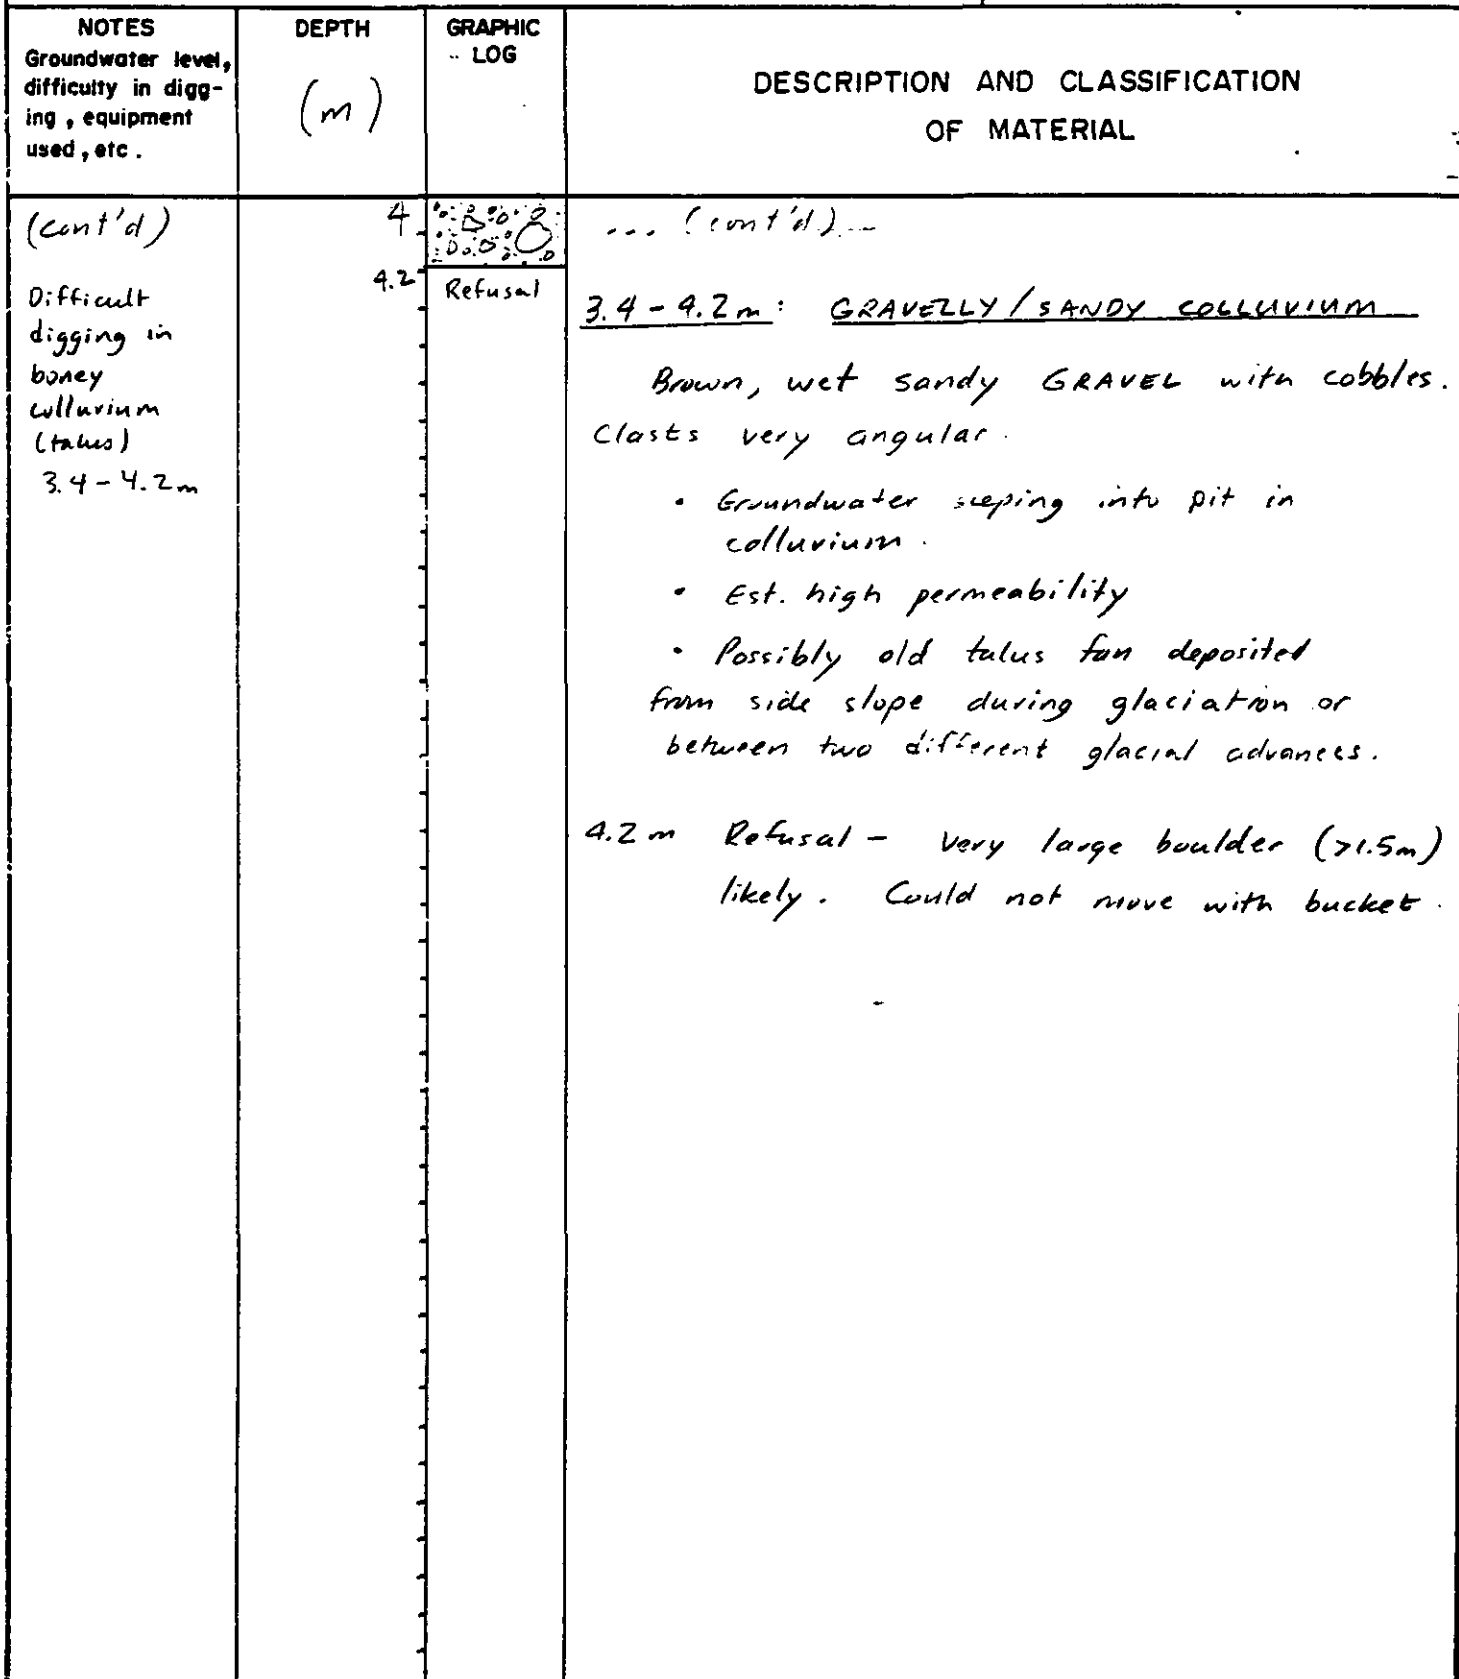 NOTES
Groundwater level,
difficulty in digg-
ing, equipment
used, etc.
DEPTH
(m)
GRAPHIC
LOG
DESCRIPTION AND CLASSIFICATION
OF MATERIAL
(cont'd)
Difficult
digging in
boney
colluvium
(talus)
3.4 - 4.2 m
4
4.2
Refusal
... (cont'd)...
3.4 - 4.2 m: GRAVELLY / SANDY COLLUVIUM
Brown, wet sandy GRAVEL with cobbles.
Clasts very angular.
• Groundwater seeping into pit in
colluvium.
• Est. high permeability
• Possibly old talus fan deposited
from side slope during glaciation or
between two different glacial advances.
4.2 m Refusal - Very large boulder (>1.5m)
likely. Could not move with bucket.